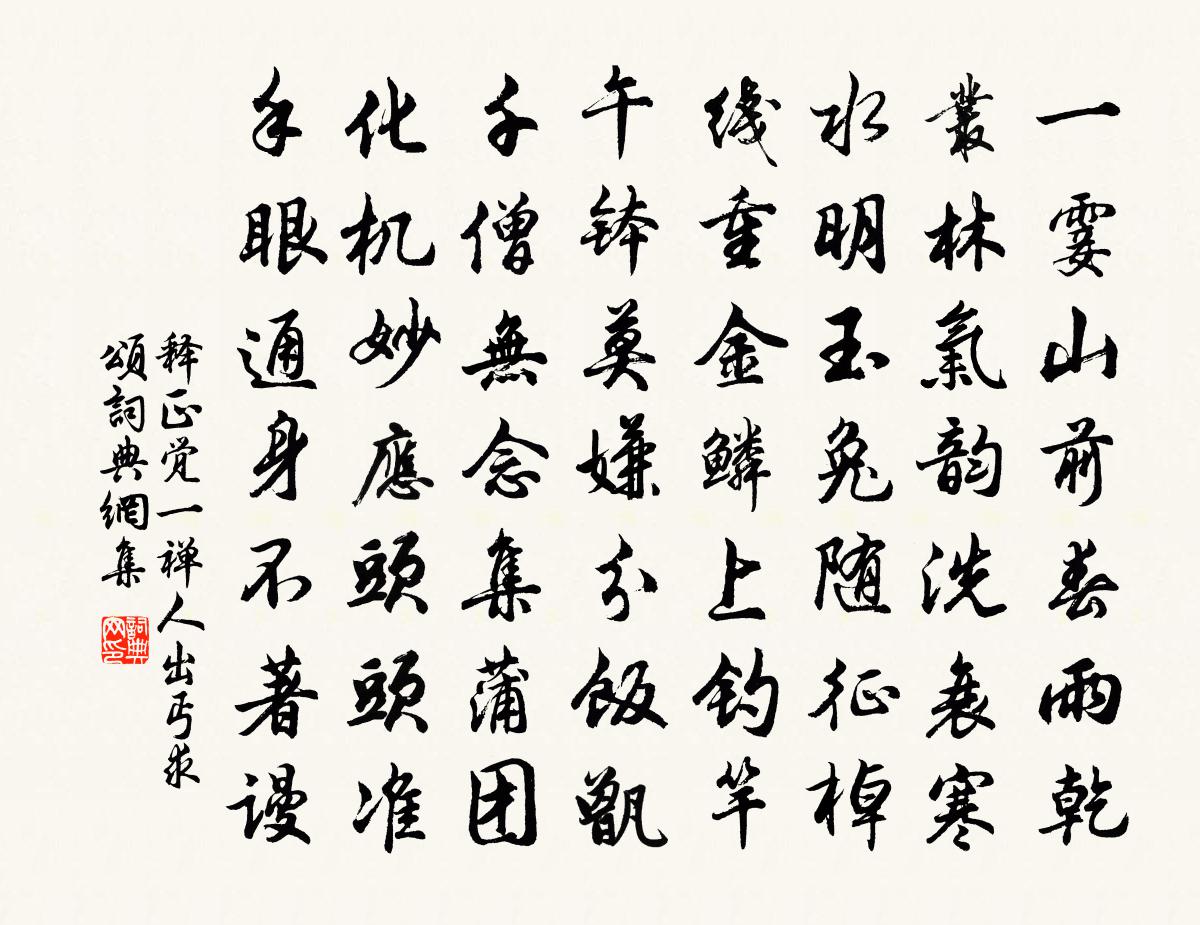 一霎山前春雨乾
叢林氣韵洗衰寒
水明玉兔随征棹
线重金鳞上钓竿
午钵莫嫌分饭甑
千僧無念集蒲团
化机妙應頭頭准
手眼通身不著谩
释正觉一禅人出丐求
頌詞典網集
詞典网印